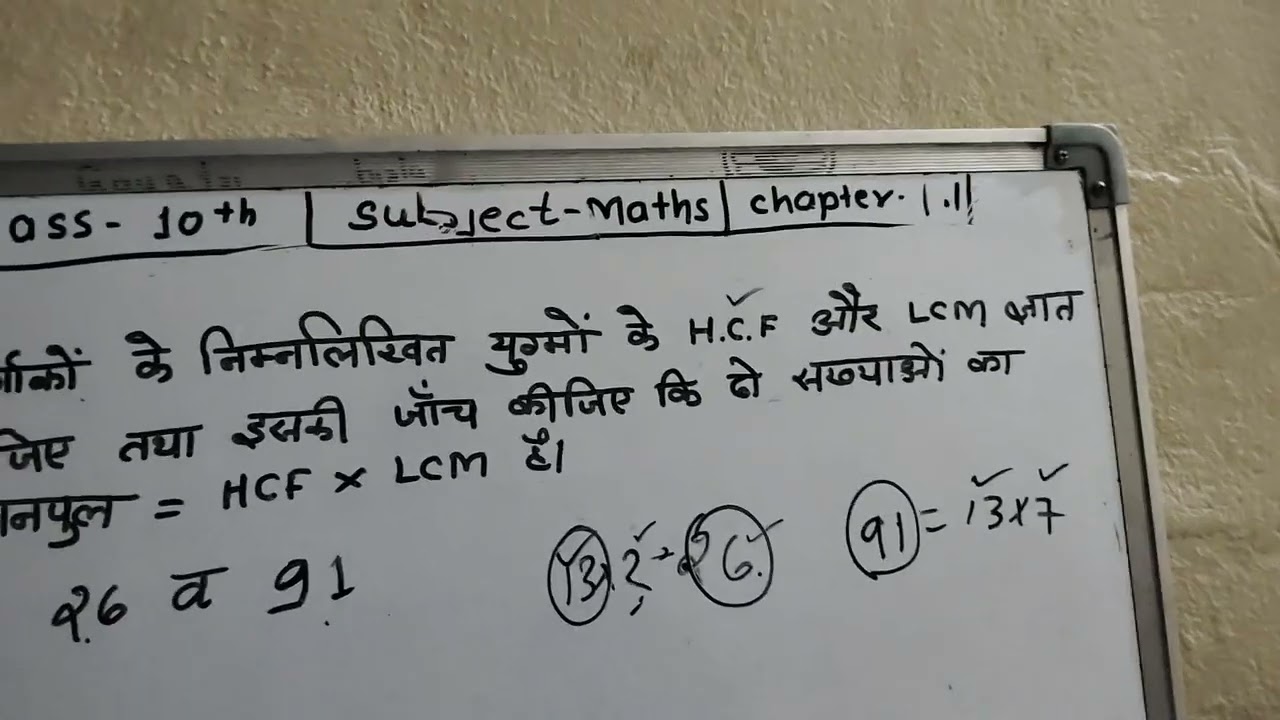 ass - 10th | Subject-Maths | chapter. 1.1
के निम्नलिखित युग्मों के H.C.F और LCM ज्ञात
जिए तथा इसकी जाँच कीजिए कि दो सख्याओं का
नपुल = HCF × LCM है।
26 व 91
91 = 13x7